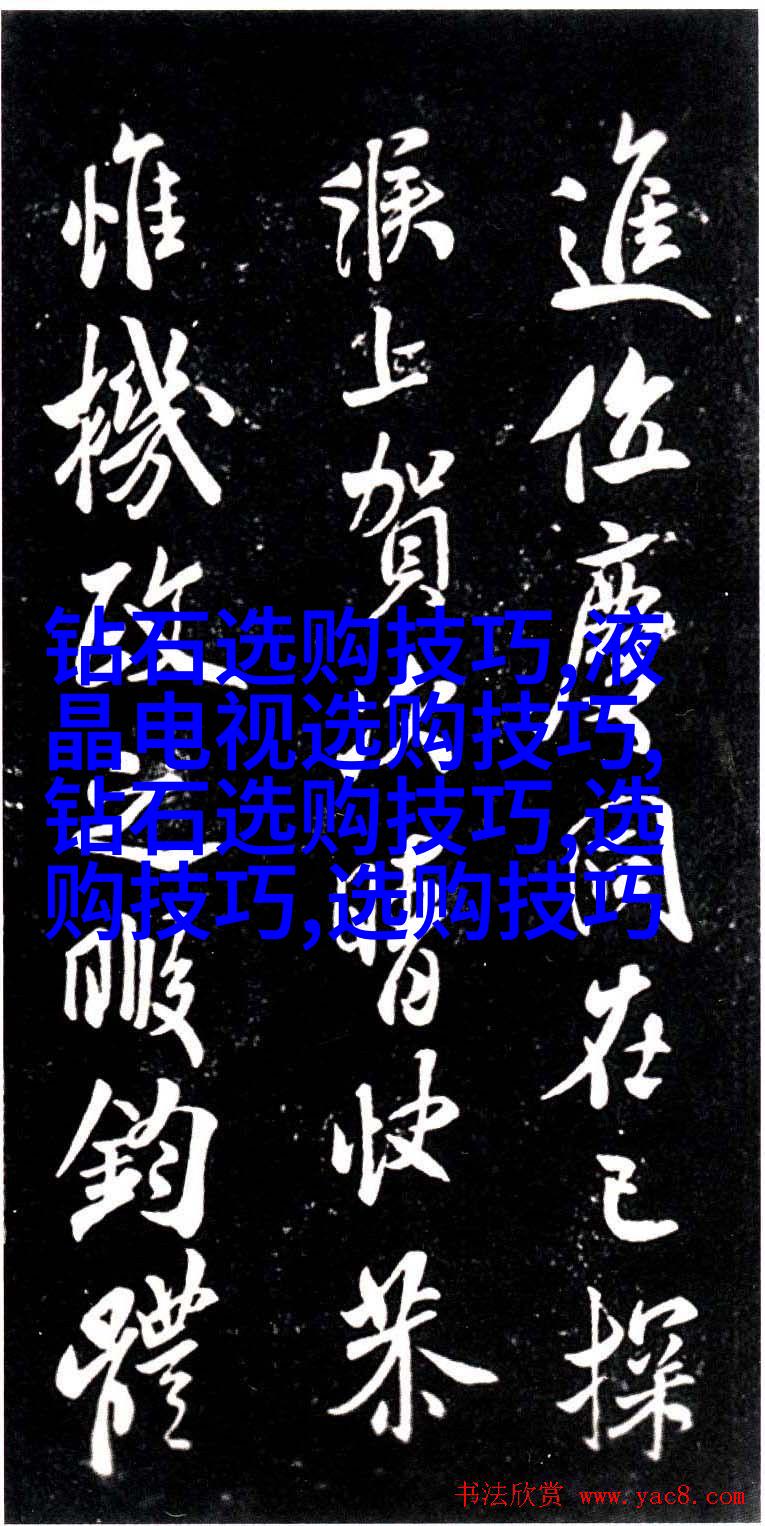 進位慶同在己探
候上賀次晴快恭
惟機政之暇鈞體
钻石选购技巧,液
晶电视选购技巧,
钻石选购技巧,选
购技巧,选购技巧
书法欣赏 www.yac8.com